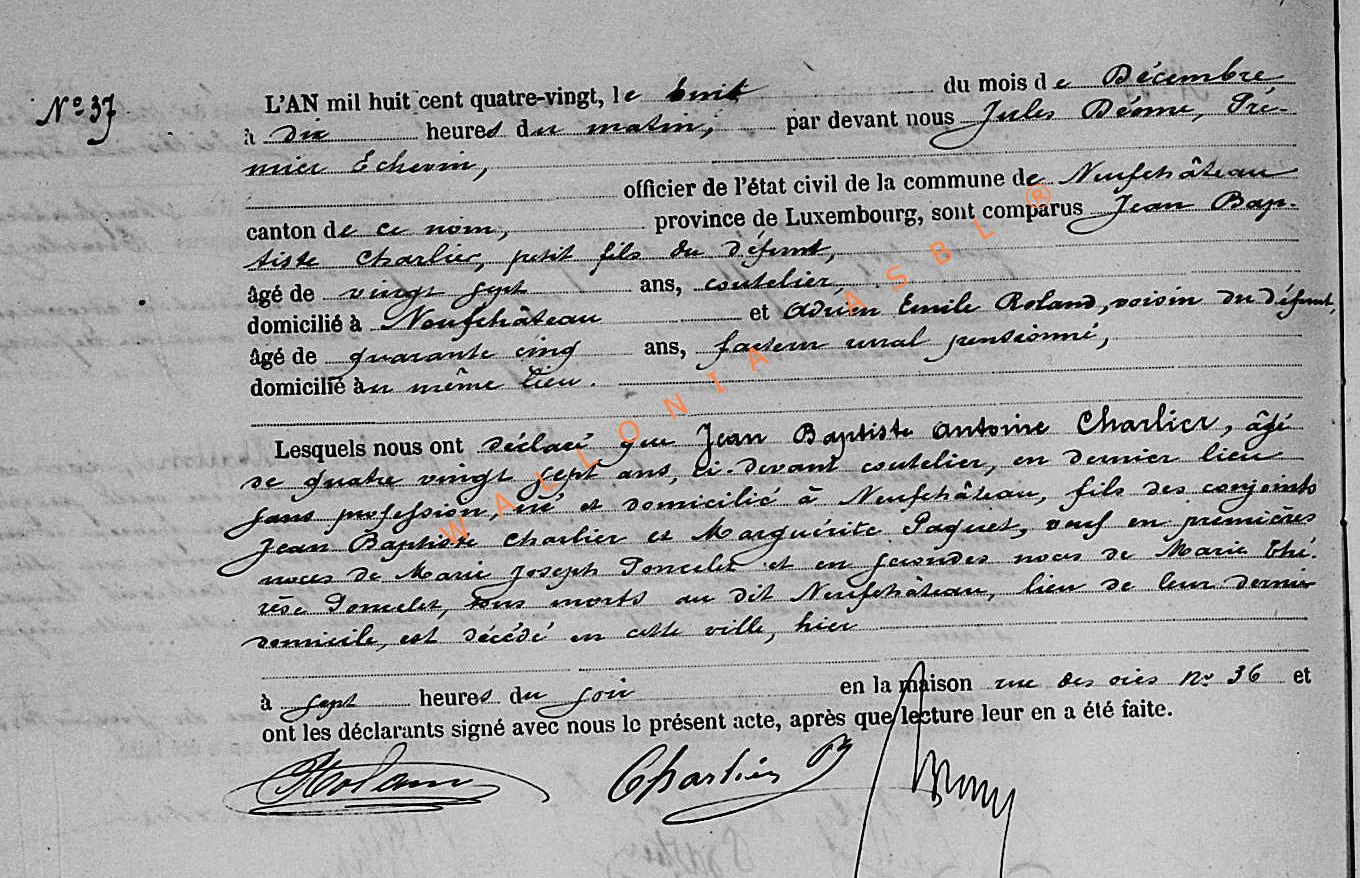 N° 37
L'AN mil huit cent quatre-vingt, le huit du mois de Décembre
à dix heures du matin, par devant nous Jules Déome, Pré-
mier Echevin,
officier de l'état civil de la commune de Neufchâteau
canton de ce nom, province de Luxembourg, sont comparus Jean Bap-
tiste Charlier, petit fils du défunt,
âgé de vingt sept ans, coutelier
domicilié à Neufchâteau et Adrien Emile Roland, voisin du défunt,
âgé de quarante cinq ans, facteur rural pensionné,
domicilié au même lieu.
Lesquels nous ont déclaré que Jean Baptiste Antoine Charlier, âgé
de quatre vingt sept ans, ci-devant coutelier, en dernier lieu
sans profession, né et domicilié à Neufchâteau, fils des conjoints
Jean Baptiste Charlier et Marguérite Paquet, veuf en premières
noces de Marie Joseph Poncelet et en secondes noces de Marie Thé-
rèse Poncelet, tous morts au dit Neufchâteau, lieu de leur dernier
domicile, est décédé en cette ville, hier
à sept heures du soir en la maison rue des oies N° 36 et
ont les déclarants signé avec nous le présent acte, après que lecture leur en a été faite.
Roland Charlier B
WALLONIA ASBL ®